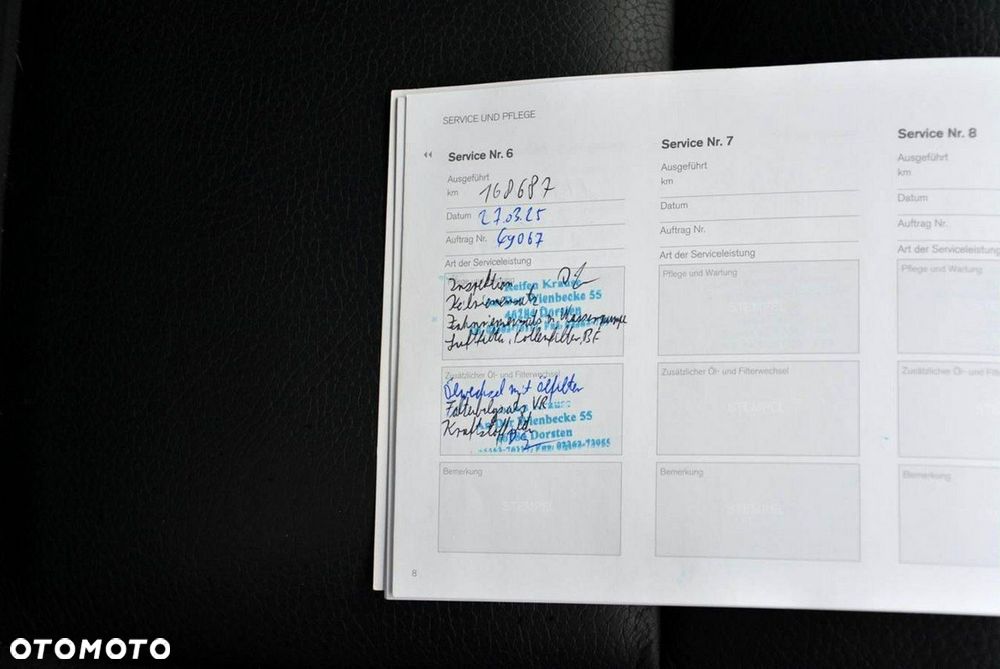 SERVICE UND PFLEGE
Service Nr. 6
Ausgeführt
km 168687
Datum 27.03.25
Auftrag Nr. 69067
Art der Serviceleistung
Inspektion
Reifen Kraus
An Der Wienbecke 55
46284 Dorsten
Zahnriemensatz m. Wasserpumpe
Luftfilter, Pollenfilter, BF
Zusätzlicher Öl- und Filterwechsel
Ölwechsel mit Ölfilter
VR
An Der Wienbecke 55
46284 Dorsten
Bemerkung
STEMPEL
8
Service Nr. 7
Ausgeführt
km
Datum
Auftrag Nr.
Art der Serviceleistung
Pflege und Wartung
STEMPEL
Zusätzlicher Öl- und Filterwechsel
STEMPEL
Bemerkung
STEMPEL
Service Nr. 8
Ausgeführt
km
Datum
Auftrag Nr.
Art der Serviceleistung
Pflege und Wartung
Zusätzlicher Öl- und F
Bemerkung
OTOMOTO